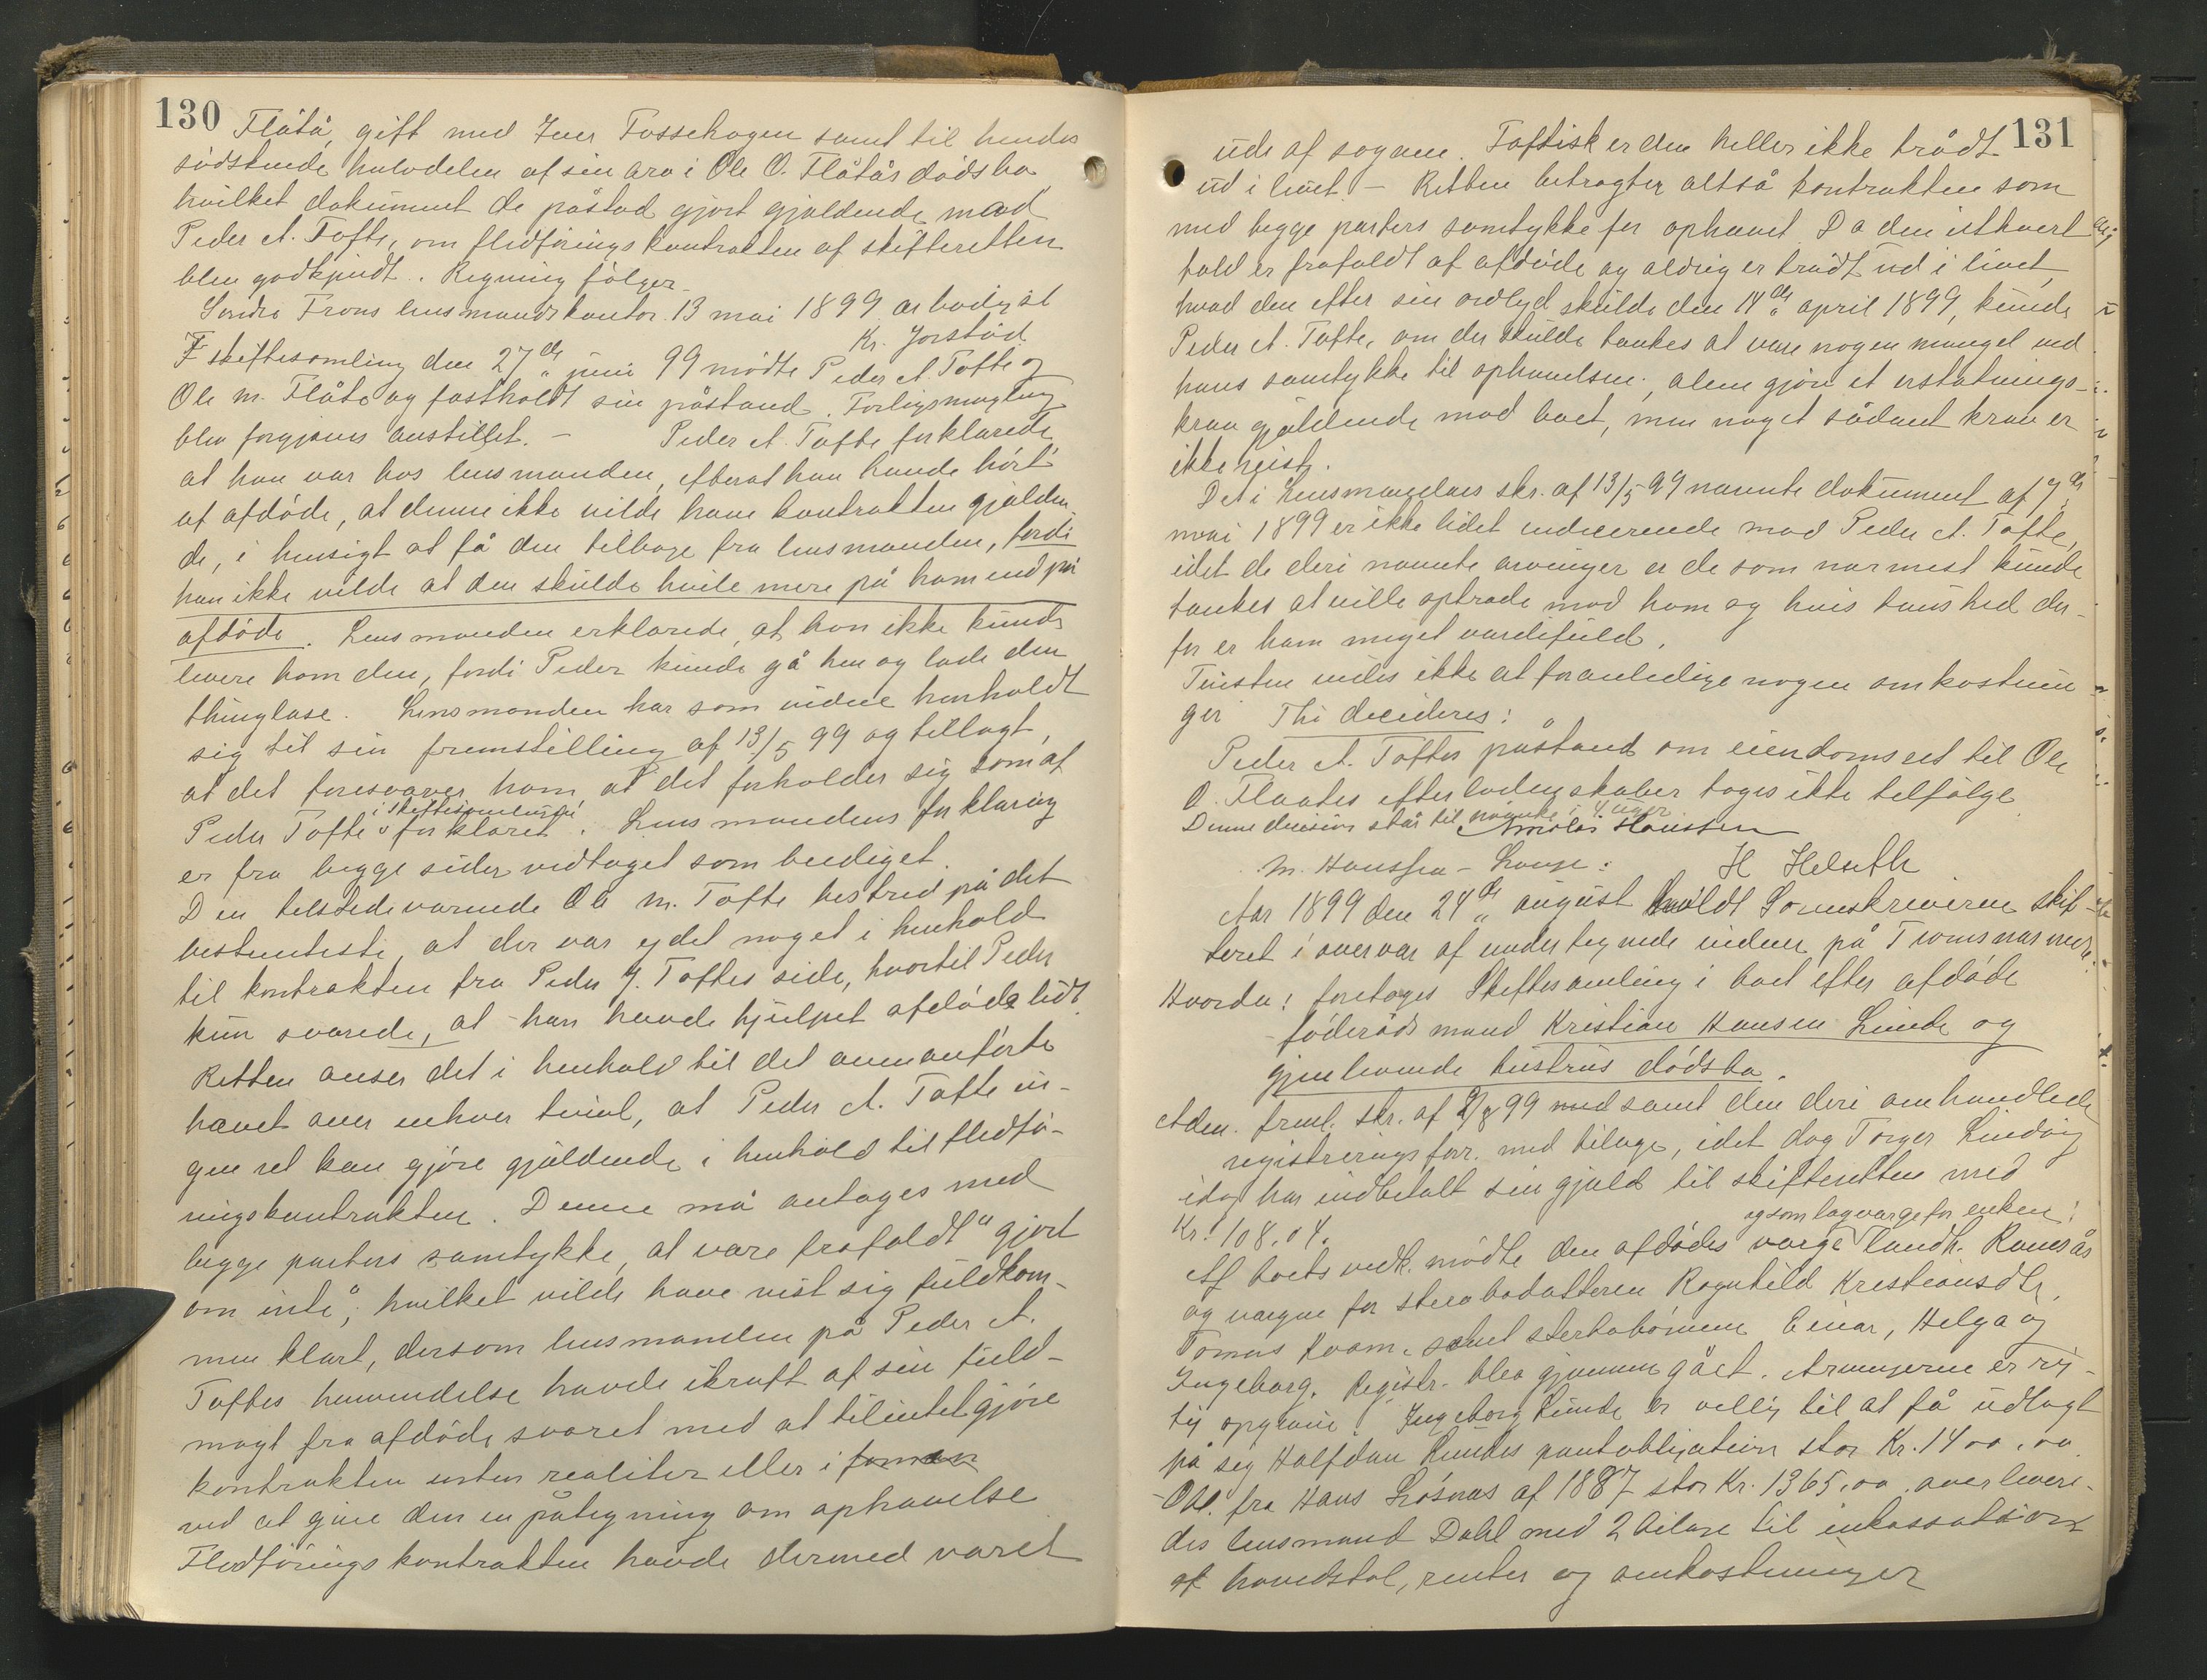 130
Flåtå, gift med Iver Fossehagen samt til hendes
södskende halvdelen af sin arv i Ole O. Flåtås dødsbo
hvilket dokument de påstod gjort gjældende mod
Peder A. Tofte, om fledföringskontrakten af skifteretten
blev godkjendt. Regning fölger.
Söndre Frons lensmandskontor 13 mai 1899 ærbödigst
Kr. Jorstad
I skiftesamling den 27de juni 99 mödte Peder A. Tofte og
Ole M. Flåte og fastholdt sin påstand. Forligsmægling
blev forgjæves anstillet. – Peder A. Tofte forklarede
at han var hos lensmanden, efterat han havde hört
af afdöde, at denne ikke vilde have kontrakten gjælden-
de, i hensigt at få den tilbage fra lensmanden, fordi
han ikke vilde at den skulde hvile mere på ham end på
afdöde. Lensmanden erklærede, at han ikke kunde
levere ham den, fordi Peder kunde gå hen og lade den
thinglæse. Lensmanden har som vidne henholdt
sig til sin fremstilling af 13/5 99 og tillagt,
at det foresvæver ham at det forholder sig som af
Peder Tofte i skiftesamlingen forklaret. Lensmandens forklaring
er fra begge sider vedtaget som beediget.
Den tilstedeværende Ole M. Tofte bestred på det
bestemteste, at der var ydet noget i henhold
til kontrakten fra Peder J. Toftes side, hvortil Peder
kun svarede, at han havde hjulpet afdöde lidt.
Retten anser det i henhold til det ovenanförte
hævet over enhver tvivl, at Peder A. Tofte in-
gen ret kan gjöre gjældende i henhold til fledfö-
ringskontrakten. Denne må antages med
begge parters samtykke, at være frafaldt "gjort
om inte", hvilket vilde have vist sig fuldkom-
men klart, dersom lensmanden på Peder A.
Toftes henvendelse havde ikraft af sin fuld-
magt fra afdöde svaret med at tilintetgjöre
kontrakten enten realiter eller i formen
ved at give den en påtegning om ophævelse
Fledföringskontrakten havde dermed været
131
ude af sagaen. Faktisk er den heller ikke trådt
ud i livet. – Retten betragter altså kontrakten som
med begge parters samtykke for ophævet. Da den ithvert
fald er frafaldt af afdöde og aldrig er trådt ud i livet,
hvad den efter sin ordlyd skulde den 14de april 1899, kunde
Peder A. Tofte, om der skulde tænkes at være nogen mangel ved
hans samtykke til ophævelsen, alene gjöre et erstatnings-
krav gjældende mod boet, men noget sådant krav er
ikke reist.
Det i Lensmandens skr. af 13/5 99 nævnte dokument af 7de
mai 1899 er ikke lidet indicerende mod Peder A. Tofte,
idet de deri nævnte arvinger er de som nærmest kunde
tænkes at ville optræde mod ham og hvis taushed der-
for er ham meget værdifuld.
Tvisten vides ikke at foranledige nogen omkostnin
ger Thi decideres:
Peder A. Toftes påstand om eiendomsret til Ole
O. Flaates efterladenskaber tages ikke tilfölge
Denne decision står til påanke i 4 uger
Nicolai Hanssen
M. Hanssen – Lange: H Helseth
Aar 1899 den 24de august holdt Sorenskriveren skif-
teret i overvær af undertegnede vidner på Tromsnæs
Hvorda: foretoges Skiftesamling i boet efter afdöde
föderådsmand Kristian Hansen Lunde og
gjenlevende hustrus dödsbo.
Adm. freml. skr. af 2/8 99 med samt den deri omhandlede
registreringsforr. med bilage, idet dog Torger Lindvig
idag har indbetalt sin gjæld til skifteretten med
Kr. 108.04.
Af boets vedk. mödte den afdödes værge og som lagværge for enken: landh. Ramsås
og værgen for sterbodatteren Ragnhild Kristiansdtr,
Tomas Kvam, samt sterbobörnene Einar, Helga og
Ingeborg. Registr. blev gjennemgået. Arvingerne er rig-
tig opgivne. Ingeborg Lunde er villig til at få udlagt
på sig Halfdan Lundes pantobligation stor Kr. 1400.00
Obl. fra Hans Lösnæs af 1887 stor Kr. 1365,00 overlevere-
des lensmand Dahl med 2 bilage til inkassation
af hovedstol, renter og omkostninger